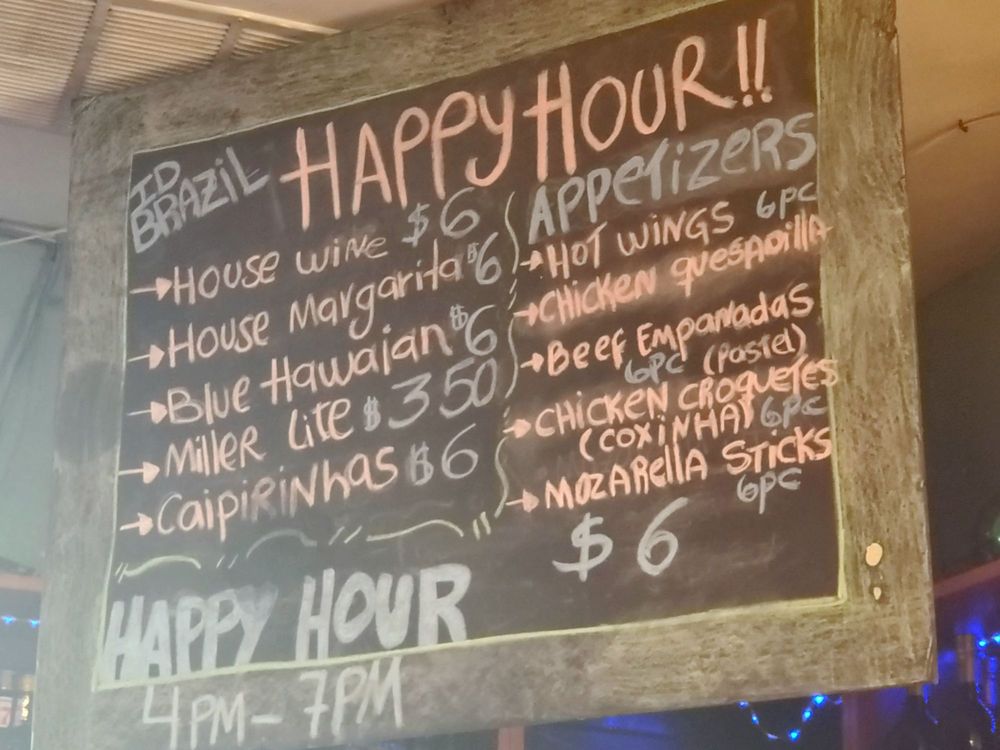 HAPPY HOUR!!
ID
BRAZIL
→HOUSE WINE $6
→HOUSE Margarita $6
→BLUE Hawaian $6
→MILLER Lite $3 50
→CAIPIRINHAS $6
APPETIZERS
→HOT WINGS 6PC
→CHICKEN QUESADILLA
→BEEF EMPANADAS
6PC (Pastel)
→CHICKEN CROQUETES
(COXINHA) 6PC
→MOZARELLA STICKS
6PC
$6
HAPPY HOUR
4PM - 7PM